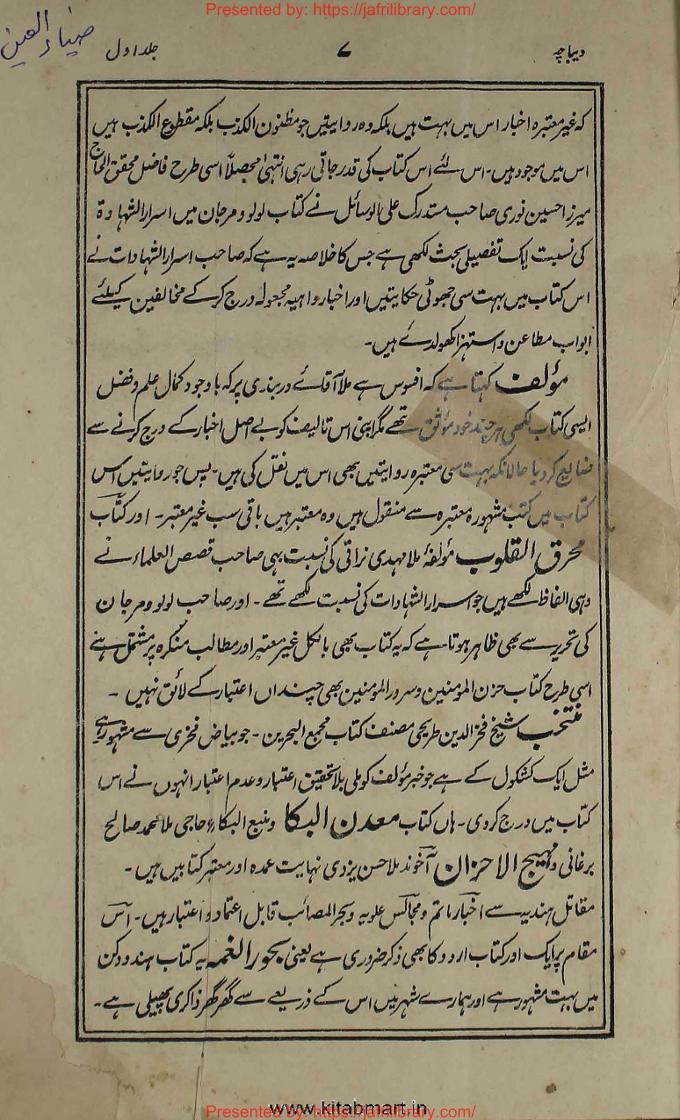 Presented by: https://jafrilibrary.com/
ضیاء العین
دیباچہ ۷ جلد اول
کہ غیر معتبرہ اخبار اس میں بہت ہیں بلکہ وہ روایتیں جو مظنون الکذب بلکہ مقطوع الکذب ہیں
اس میں موجود ہیں۔ اس لئے اس کتاب کی قدر جاتی رہی انتہیٰ محصلاً اسی طرح فاضل محقق الحاج
میرزا حسین نوری صاحب مستدرک علی الوسائل نے کتاب لولو و مرجان میں اسرار الشہادۃ
کی نسبت ایک تفصیلی بحث لکھی ہے جس کا خلاصہ یہ ہے کہ صاحب اسرار الشہادات نے
اس کتاب میں بہت سی جھوٹی حکایتیں اور اخبار واہیہ مجعولہ درج کر کے مخالفین کیلئے
ابواب مطاعن و استہزا کھولدے ہیں۔
مؤلف کہتا ہے کہ افسوس ہے ملا آقائے دربندی پر کہ باوجود کمال علم و فضل
ایسی کتاب لکھی ہر چند خود موثق تھے مگر اپنی اس تالیف کو بے اصل اخبار کے درج کرنے سے
ضایع کر دیا حالانکہ بہت سی معتبرہ روایتیں بھی اس میں نقل کی ہیں۔ پس جو روایتیں اس
کتاب میں کتب مشہورہ معتبرہ سے منقول ہیں وہ معتبر ہیں باقی سب غیر معتبر۔ اور کتاب
محرق القلوب مؤلفۂ ملا مہدی نراقی کی نسبت یہی صاحب قصص العلماء نے
وہی الفاظ لکھے ہیں جو اسرار الشہادات کی نسبت لکھے تھے۔ اور صاحب لولو و مرجان
کی تحریر سے بھی ظاہر ہوتا ہے کہ یہ کتاب بھی بالکل غیر معتبر اور مطالب منکرہ پر مشتمل ہے
اسی طرح کتاب حزن المومنین و سرور المومنین بھی چنداں اعتبار کے لائق نہیں۔
منتخب شیخ فخر الدین طریحی مصنف کتاب مجمع البحرین۔ جو بیاض فخری سے مشہور ہے
مثل ایک کشکول کے ہے جو خبر مؤلف کو ملی بلا تحقیق اعتبار و عدم اعتبار انہوں نے اس
کتاب میں درج کر دی۔ ہاں کتاب معدن البکا و منبع البکاء حاجی ملا محمد صالح
برغانی و مہیج الاحزان آخوند ملا حسن یزدی نہایت عمدہ اور معتبر کتابیں ہیں۔
مقاتل ہندیہ سے اخبار ماتم و مجالس علویہ و بحر المصائب قابل اعتماد و اعتبار ہیں۔ اس
مقام پر ایک اور کتاب اردو کا بھی ذکر ضروری ہے یعنی بحور الغمہ یہ کتاب ہندو دکن
میں بہت مشہور ہے اور ہمارے شہر میں اس کے ذریعے سے گھر گھر ذاکری پھیلی ہے۔
www.kitabmart.in
Presented by: https://jafrilibrary.com/